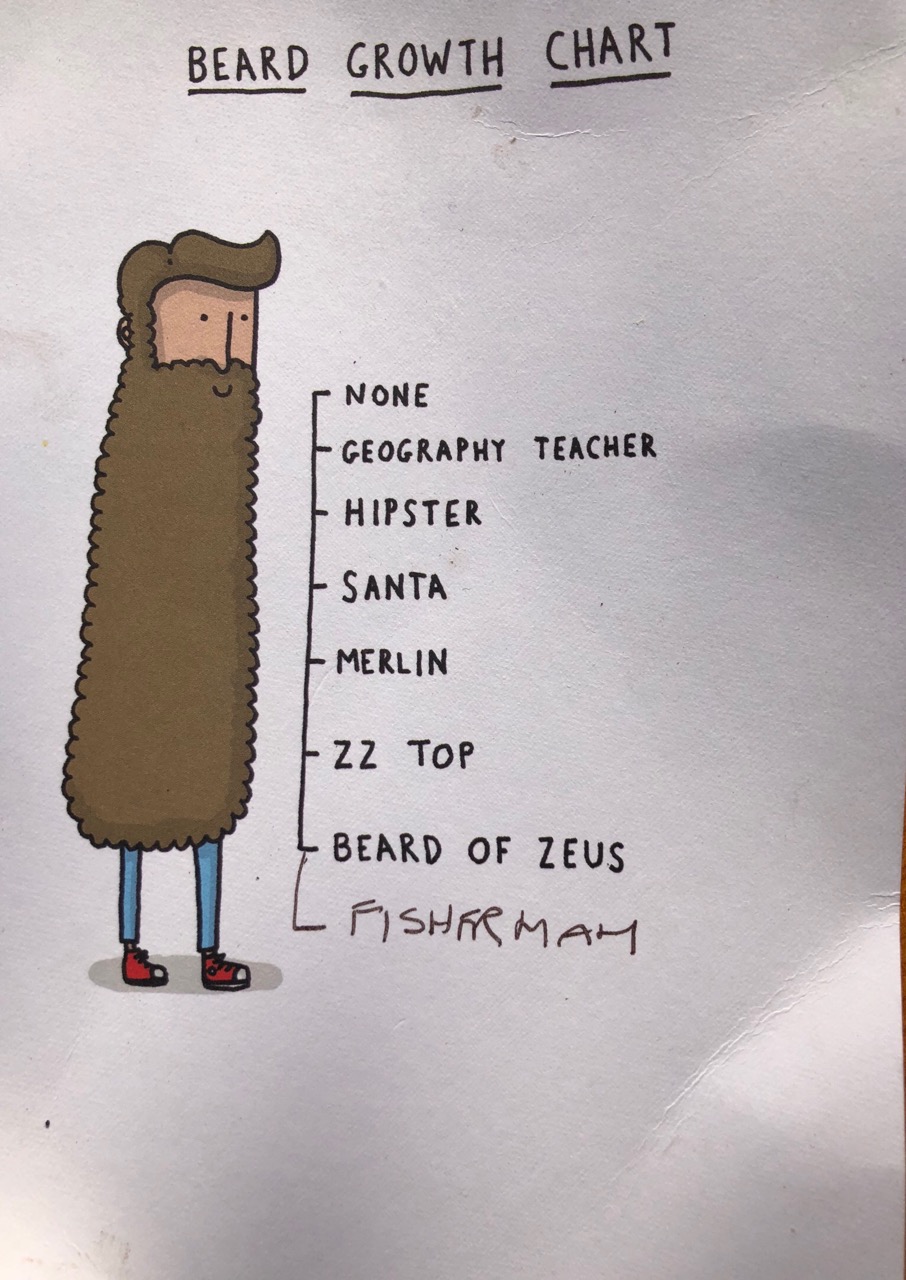 BEARD GROWTH CHART
NONE
GEOGRAPHY TEACHER
HIPSTER
SANTA
MERLIN
ZZ TOP
BEARD OF ZEUS
FISHERMAN